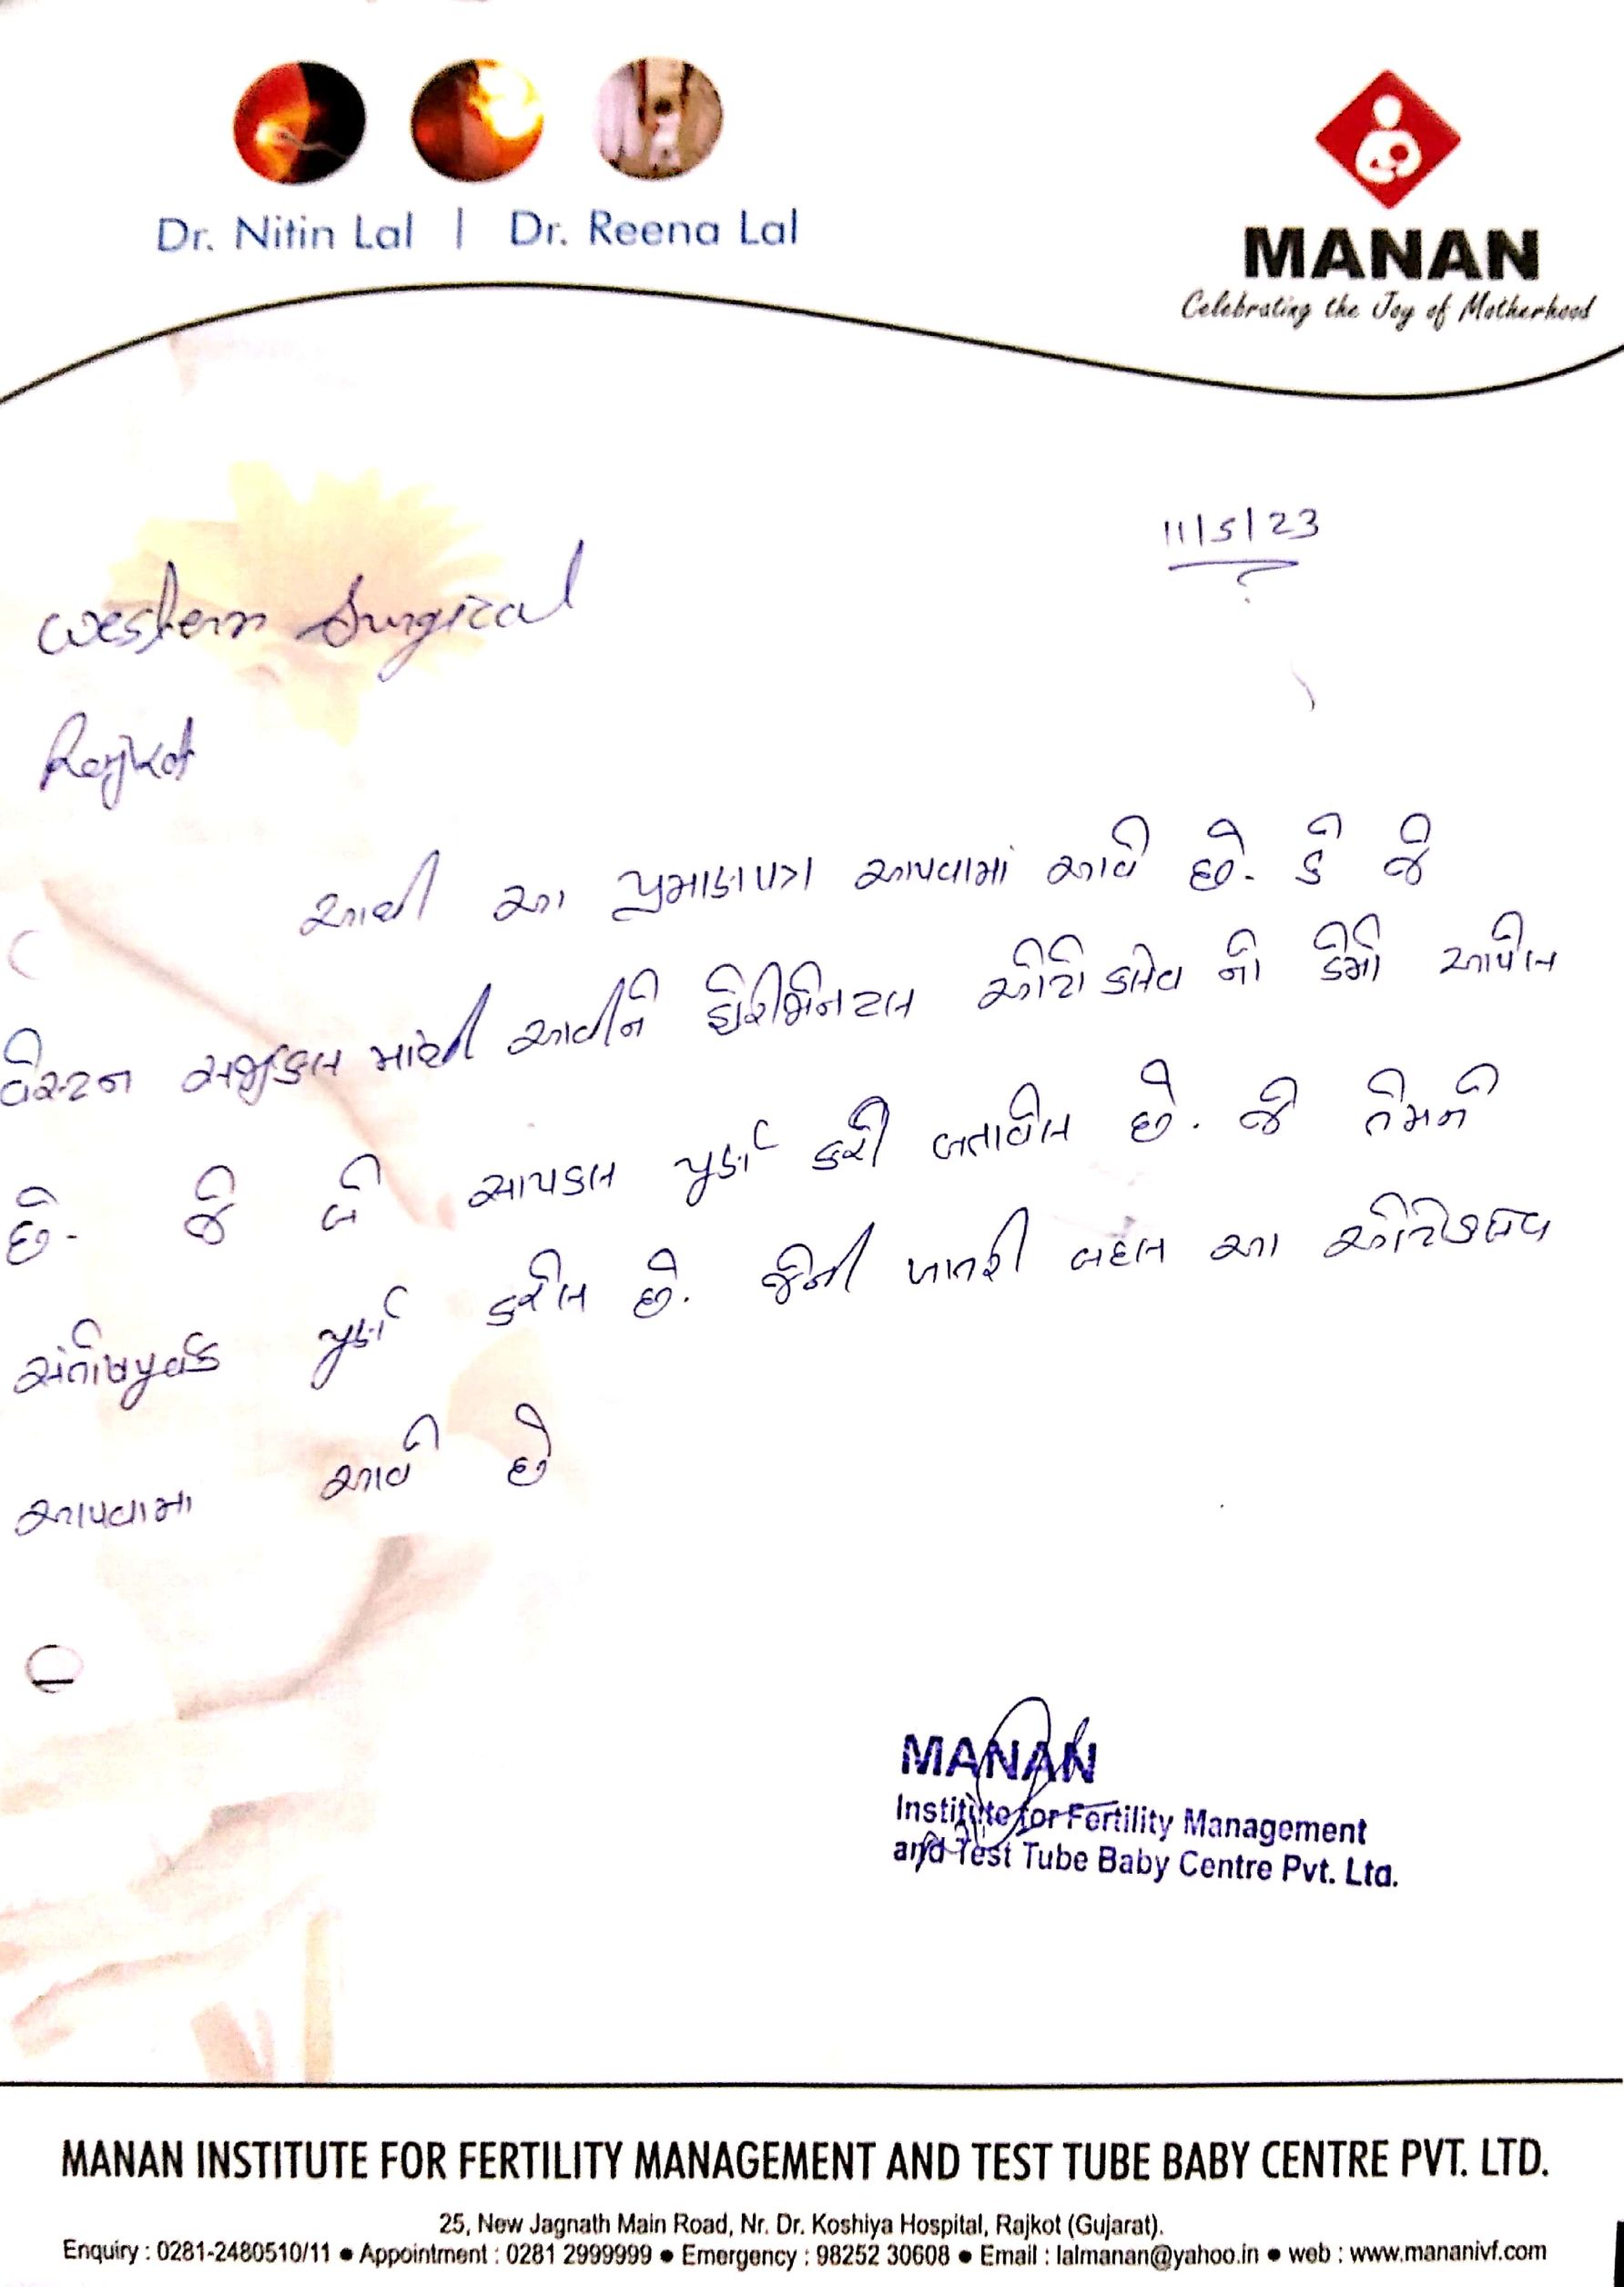 Dr. Nitin Lal | Dr. Reena Lal
MANAN
Celebrating the Joy of Motherhood
11/5/23
Western Surgical
Rajkot
આથી આ પ્રમાણપત્ર આપવામાં આવે છે. કે જે
વેસ્ટન સર્જીકલ માંથી આવીને હોરીઝેન્ટલ ઓટોકલેવ નો ડેમો આપેલ
છે. જે બે સાયકલ પુર્ણ કરી બતાવેલ છે. જે તેમને
સંતોષપુર્વક પુર્ણ કરેલ છે. જેની ખાતરી બદલ આ
આપવામા આવે છે
MANAN
Institute for Fertility Management
and Test Tube Baby Centre Pvt. Ltd.
MANAN INSTITUTE FOR FERTILITY MANAGEMENT AND TEST TUBE BABY CENTRE PVT. LTD.
25, New Jagnath Main Road, Nr. Dr. Koshiya Hospital, Rajkot (Gujarat).
Enquiry : 0281-2480510/11 ● Appointment : 0281 2999999 ● Emergency : 98252 30608 ● Email : lalmanan@yahoo.in ● web : www.mananivf.com